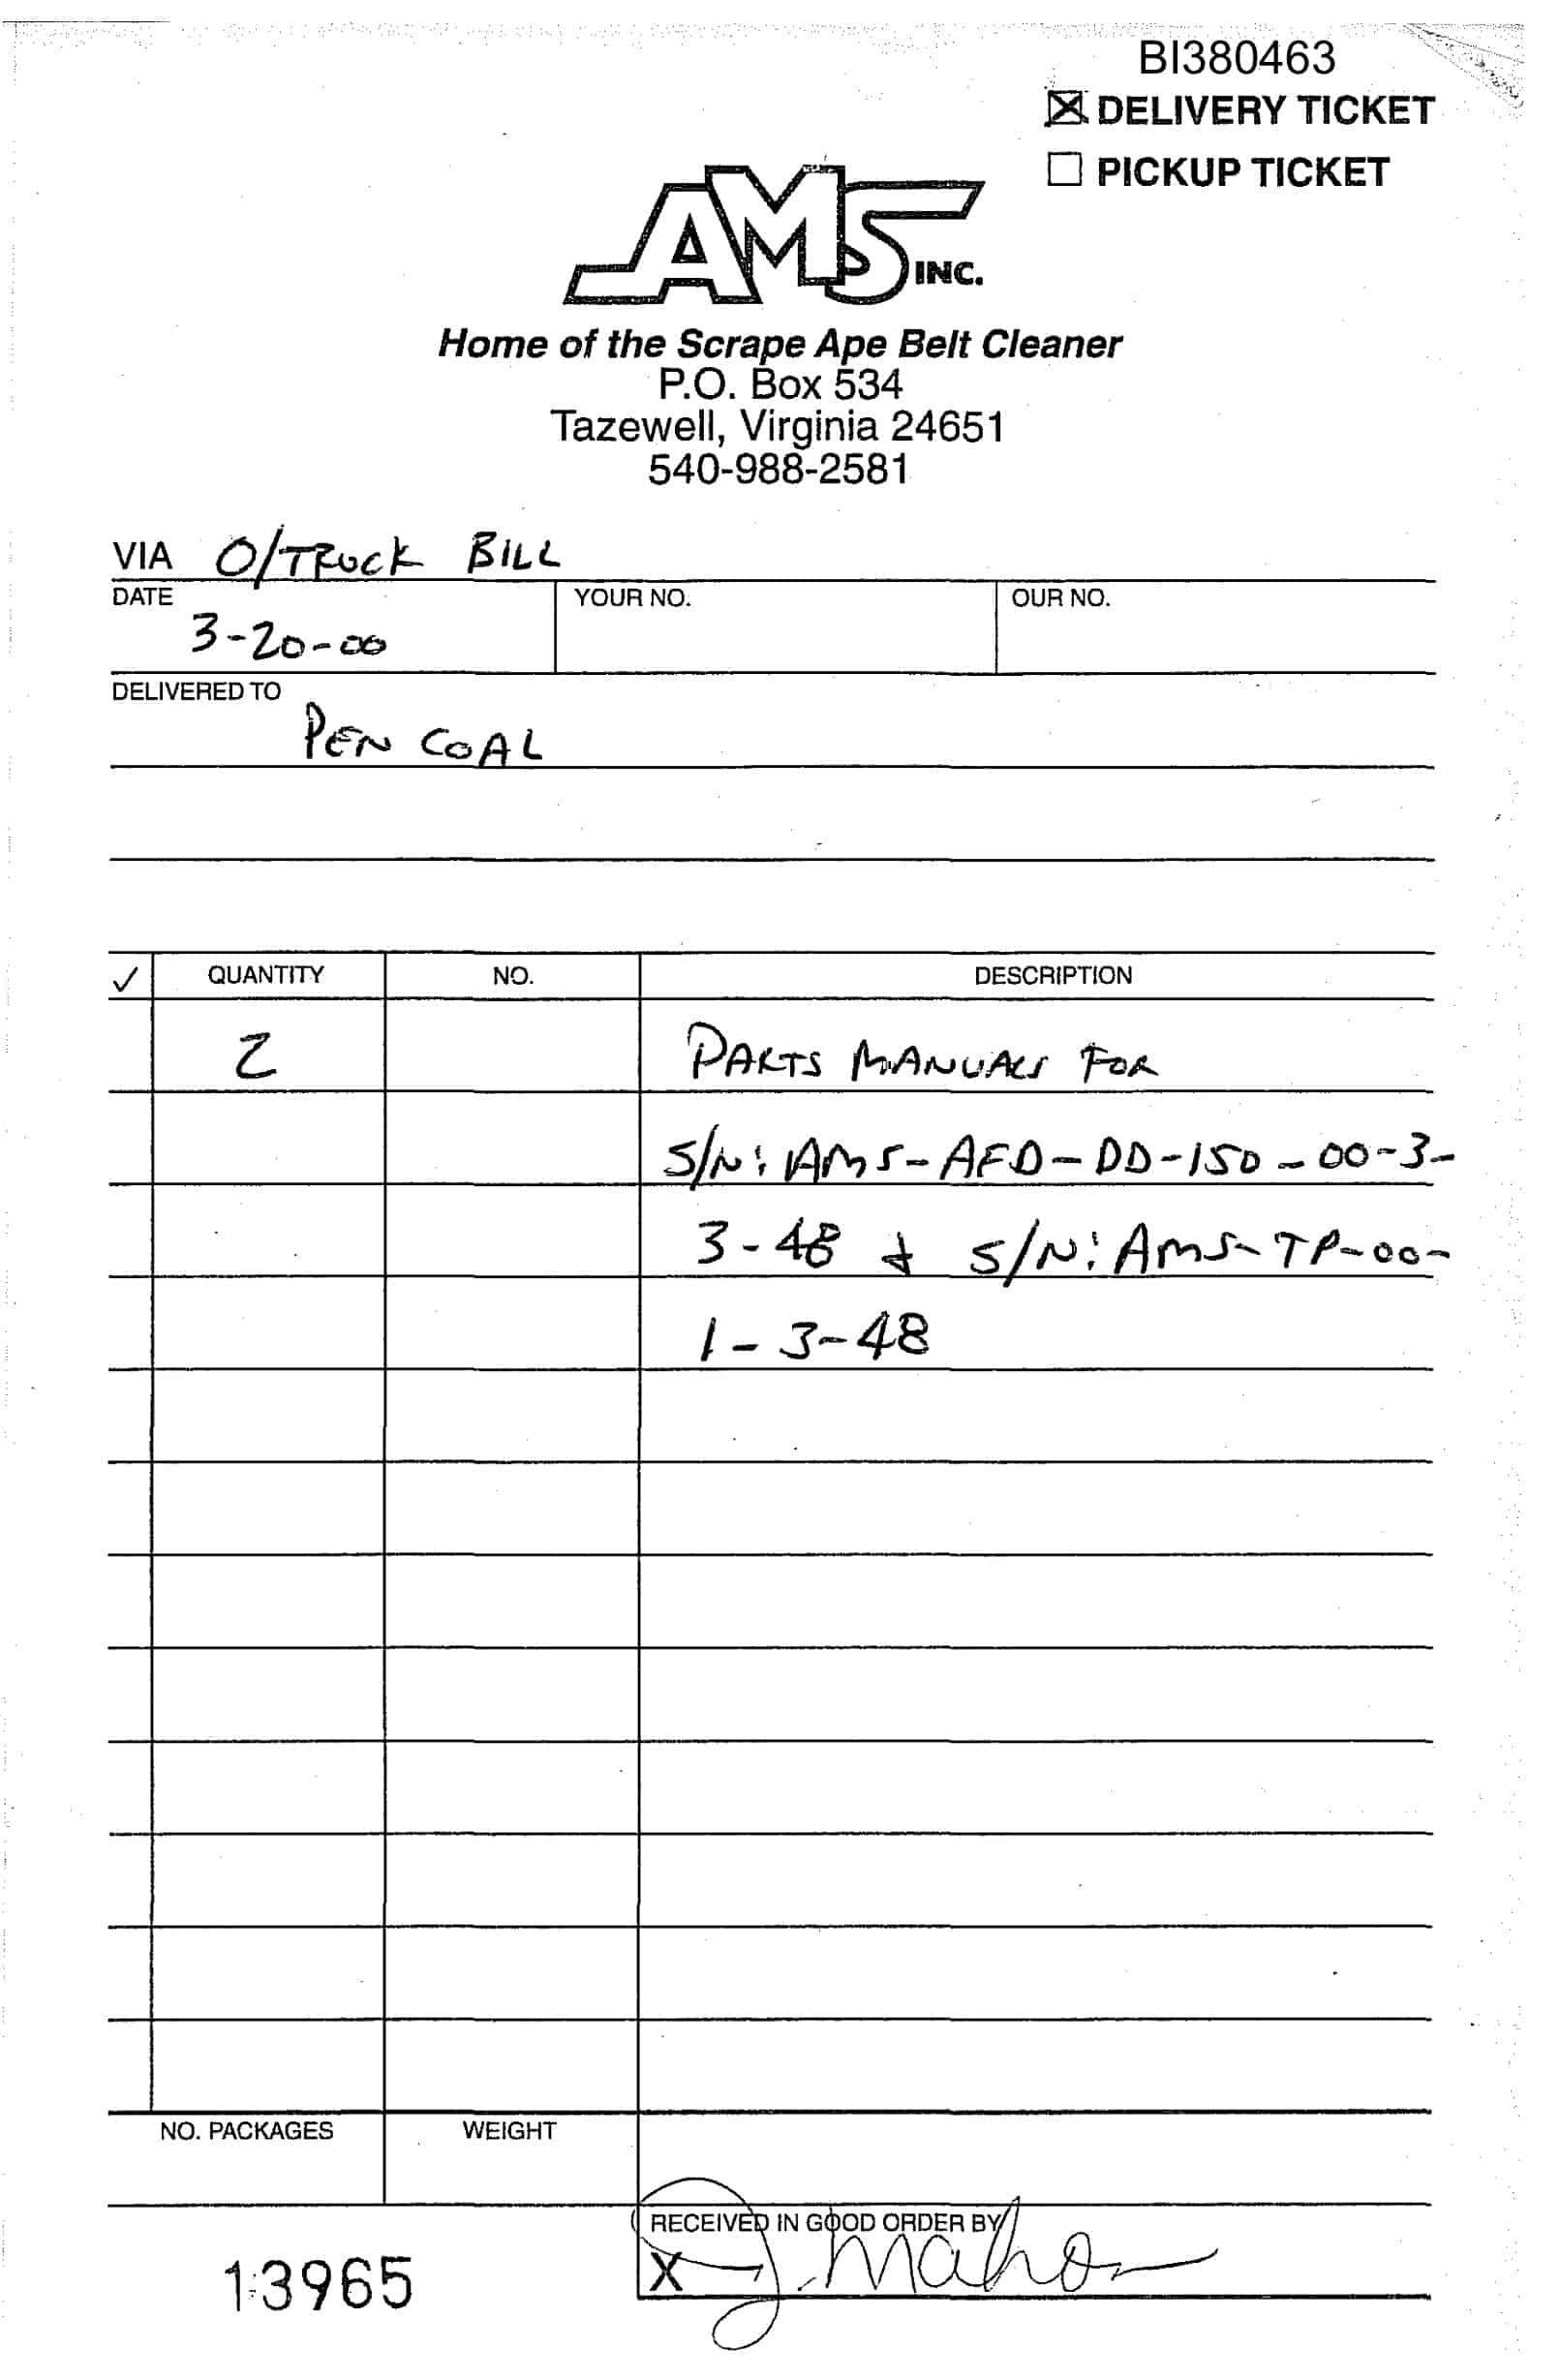 BI380463
☒ DELIVERY TICKET
☐ PICKUP TICKET
AMS INC.
Home of the Scrape Ape Belt Cleaner
P.O. Box 534
Tazewell, Virginia 24651
540-988-2581
VIA O/TRUCK BILL
DATE YOUR NO. OUR NO.
3-20-00
DELIVERED TO
PEN COAL
✓ QUANTITY NO. DESCRIPTION
2 PARTS MANUALS FOR
S/N: AMS-AFD-DD-150-00-3-
3-48 & S/N: AMS-TP-00-
1-3-48
NO. PACKAGES WEIGHT
RECEIVED IN GOOD ORDER BY
X J. Mahon
13965